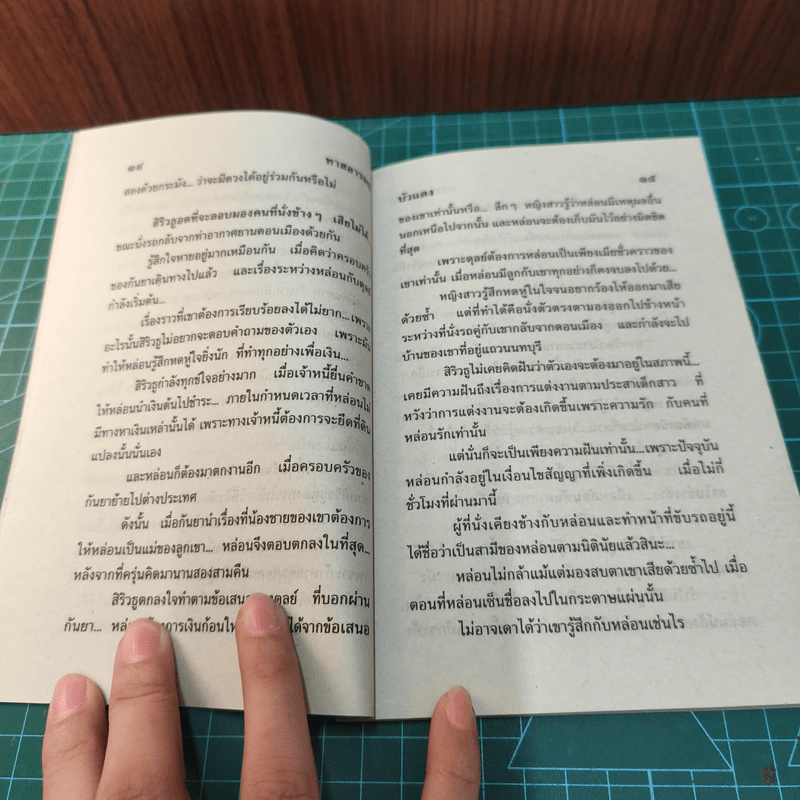 ๑๔
ทาสสวาท
สองด้วยกระมัง... ว่าจะมีดวงได้อยู่ร่วมกันหรือไม่
สิริวธูอดที่จะลอบมองคนที่นั่งข้าง ๆ เสียไม่ได้
ขณะนั่งรถกลับจากท่าอากาศยานดอนเมืองด้วยกัน
รู้สึกใจหายอยู่มากเหมือนกัน เมื่อคิดว่าครอบครัว
ของกันยาเดินทางไปแล้ว และเรื่องระหว่างหล่อนกับตุลย์
กำลังเริ่มต้น...
เรื่องราวที่เขาต้องการเรียบร้อยลงได้ไม่ยาก...เพราะ
อะไรนั้นสิริวธูไม่อยากจะตอบคำถามของตัวเอง เพราะมัน
ทำให้หล่อนรู้สึกหดหู่ใจยิ่งนัก ที่ทำทุกอย่างเพื่อเงิน...
สิริวธูกำลังทุกข์ใจอย่างมาก เมื่อเจ้าหนี้ยื่นคำขาด
ให้หล่อนนำเงินต้นไปชำระ... ภายในกำหนดเวลาที่หล่อนไม่
มีทางหาเงินเหล่านั้นได้ เพราะทางเจ้าหนี้ต้องการจะยึดที่ดิน
แปลงนั้นนั่นเอง
และหล่อนก็ต้องมาตกงานอีก เมื่อครอบครัวของ
กันยาย้ายไปต่างประเทศ
ดังนั้น เมื่อกันยานำเรื่องที่น้องชายของเขาต้องการ
ให้หล่อนเป็นแม่ของลูกเขา... หล่อนจึงตอบตกลงในที่สุด...
หลังจากที่ครุ่นคิดมานานสองสามคืน
สิริวธูตกลงใจทำตามข้อเสนอ ตุลย์ ที่บอกผ่าน
กันยา... การเงินก้อนให ได้จากข้อเสนอ
บัวแดง
๑๕
ของเขาเท่านั้นหรือ... ลึก ๆ หญิงสาวรู้ว่าหล่อนมีเหตุผลอื่น
นอกเหนือไปจากนั้น และหล่อนจะต้องเก็บมันไว้อย่างมิดชิด
ที่สุด
เพราะตุลย์ต้องการหล่อนเป็นเพียงเมียชั่วคราวของ
เขาเท่านั้น เมื่อหล่อนมีลูกกับเขาทุกอย่างก็คงจบลงไปด้วย...
หญิงสาวรู้สึกหดหู่ในใจจนอยากร้องไห้ออกมาเสีย
ด้วยซ้ำ แต่ที่ทำได้คือนั่งตัวตรงตามองออกไปข้างหน้า
ระหว่างที่นั่งรถคู่กับเขากลับจากดอนเมือง และกำลังจะไป
บ้านของเขาที่อยู่แถวนนทบุรี
สิริวธูไม่เคยคิดฝันว่าตัวเองจะต้องมาอยู่ในสภาพนี้...
เคยมีความฝันถึงเรื่องการแต่งงานตามประสาเด็กสาว ที่
หวังว่าการแต่งงานจะต้องเกิดขึ้นเพราะความรัก กับคนที่
หล่อนรักเท่านั้น
แต่นั่นก็จะเป็นเพียงความฝันเท่านั้น...เพราะปัจจุบัน
หล่อนกำลังอยู่ในเงื่อนไขสัญญาที่เพิ่งเกิดขึ้น เมื่อไม่กี่
ชั่วโมงที่ผ่านมานี้
ผู้ที่นั่งเคียงข้างกับหล่อนและทำหน้าที่ขับรถอยู่นี้
ได้ชื่อว่าเป็นสามีของหล่อนตามนิตินัยแล้วสินะ...
หล่อนไม่กล้าแม้แต่มองสบตาเขาเสียด้วยซ้ำไป เมื่อ
ตอนที่หล่อนเซ็นชื่อลงไปในกระดาษแผ่นนั้น
ไม่อาจเดาได้ว่าเขารู้สึกกับหล่อนเช่นไร